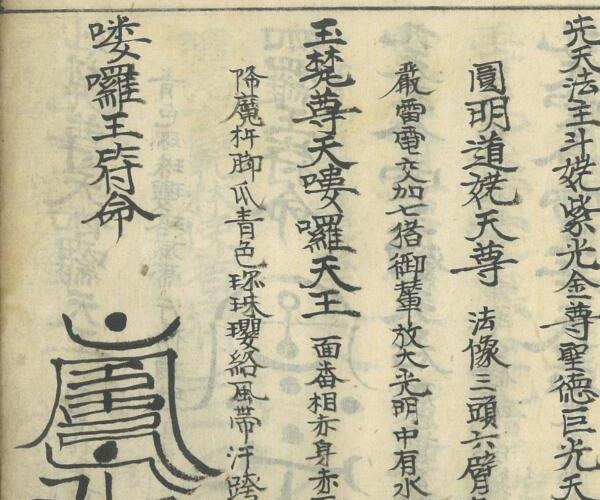 先天法主斗姥紫光金尊聖德巨光天
圓明道姥天尊 法像三頭六臂
嚴雷電交加七猪御輦放大光明中有水
玉梵尊天嘍囉天王 面畨相亦身赤
降魔杵脚爪青色珠瓔絡風帶汗跨
嘍囉王符命